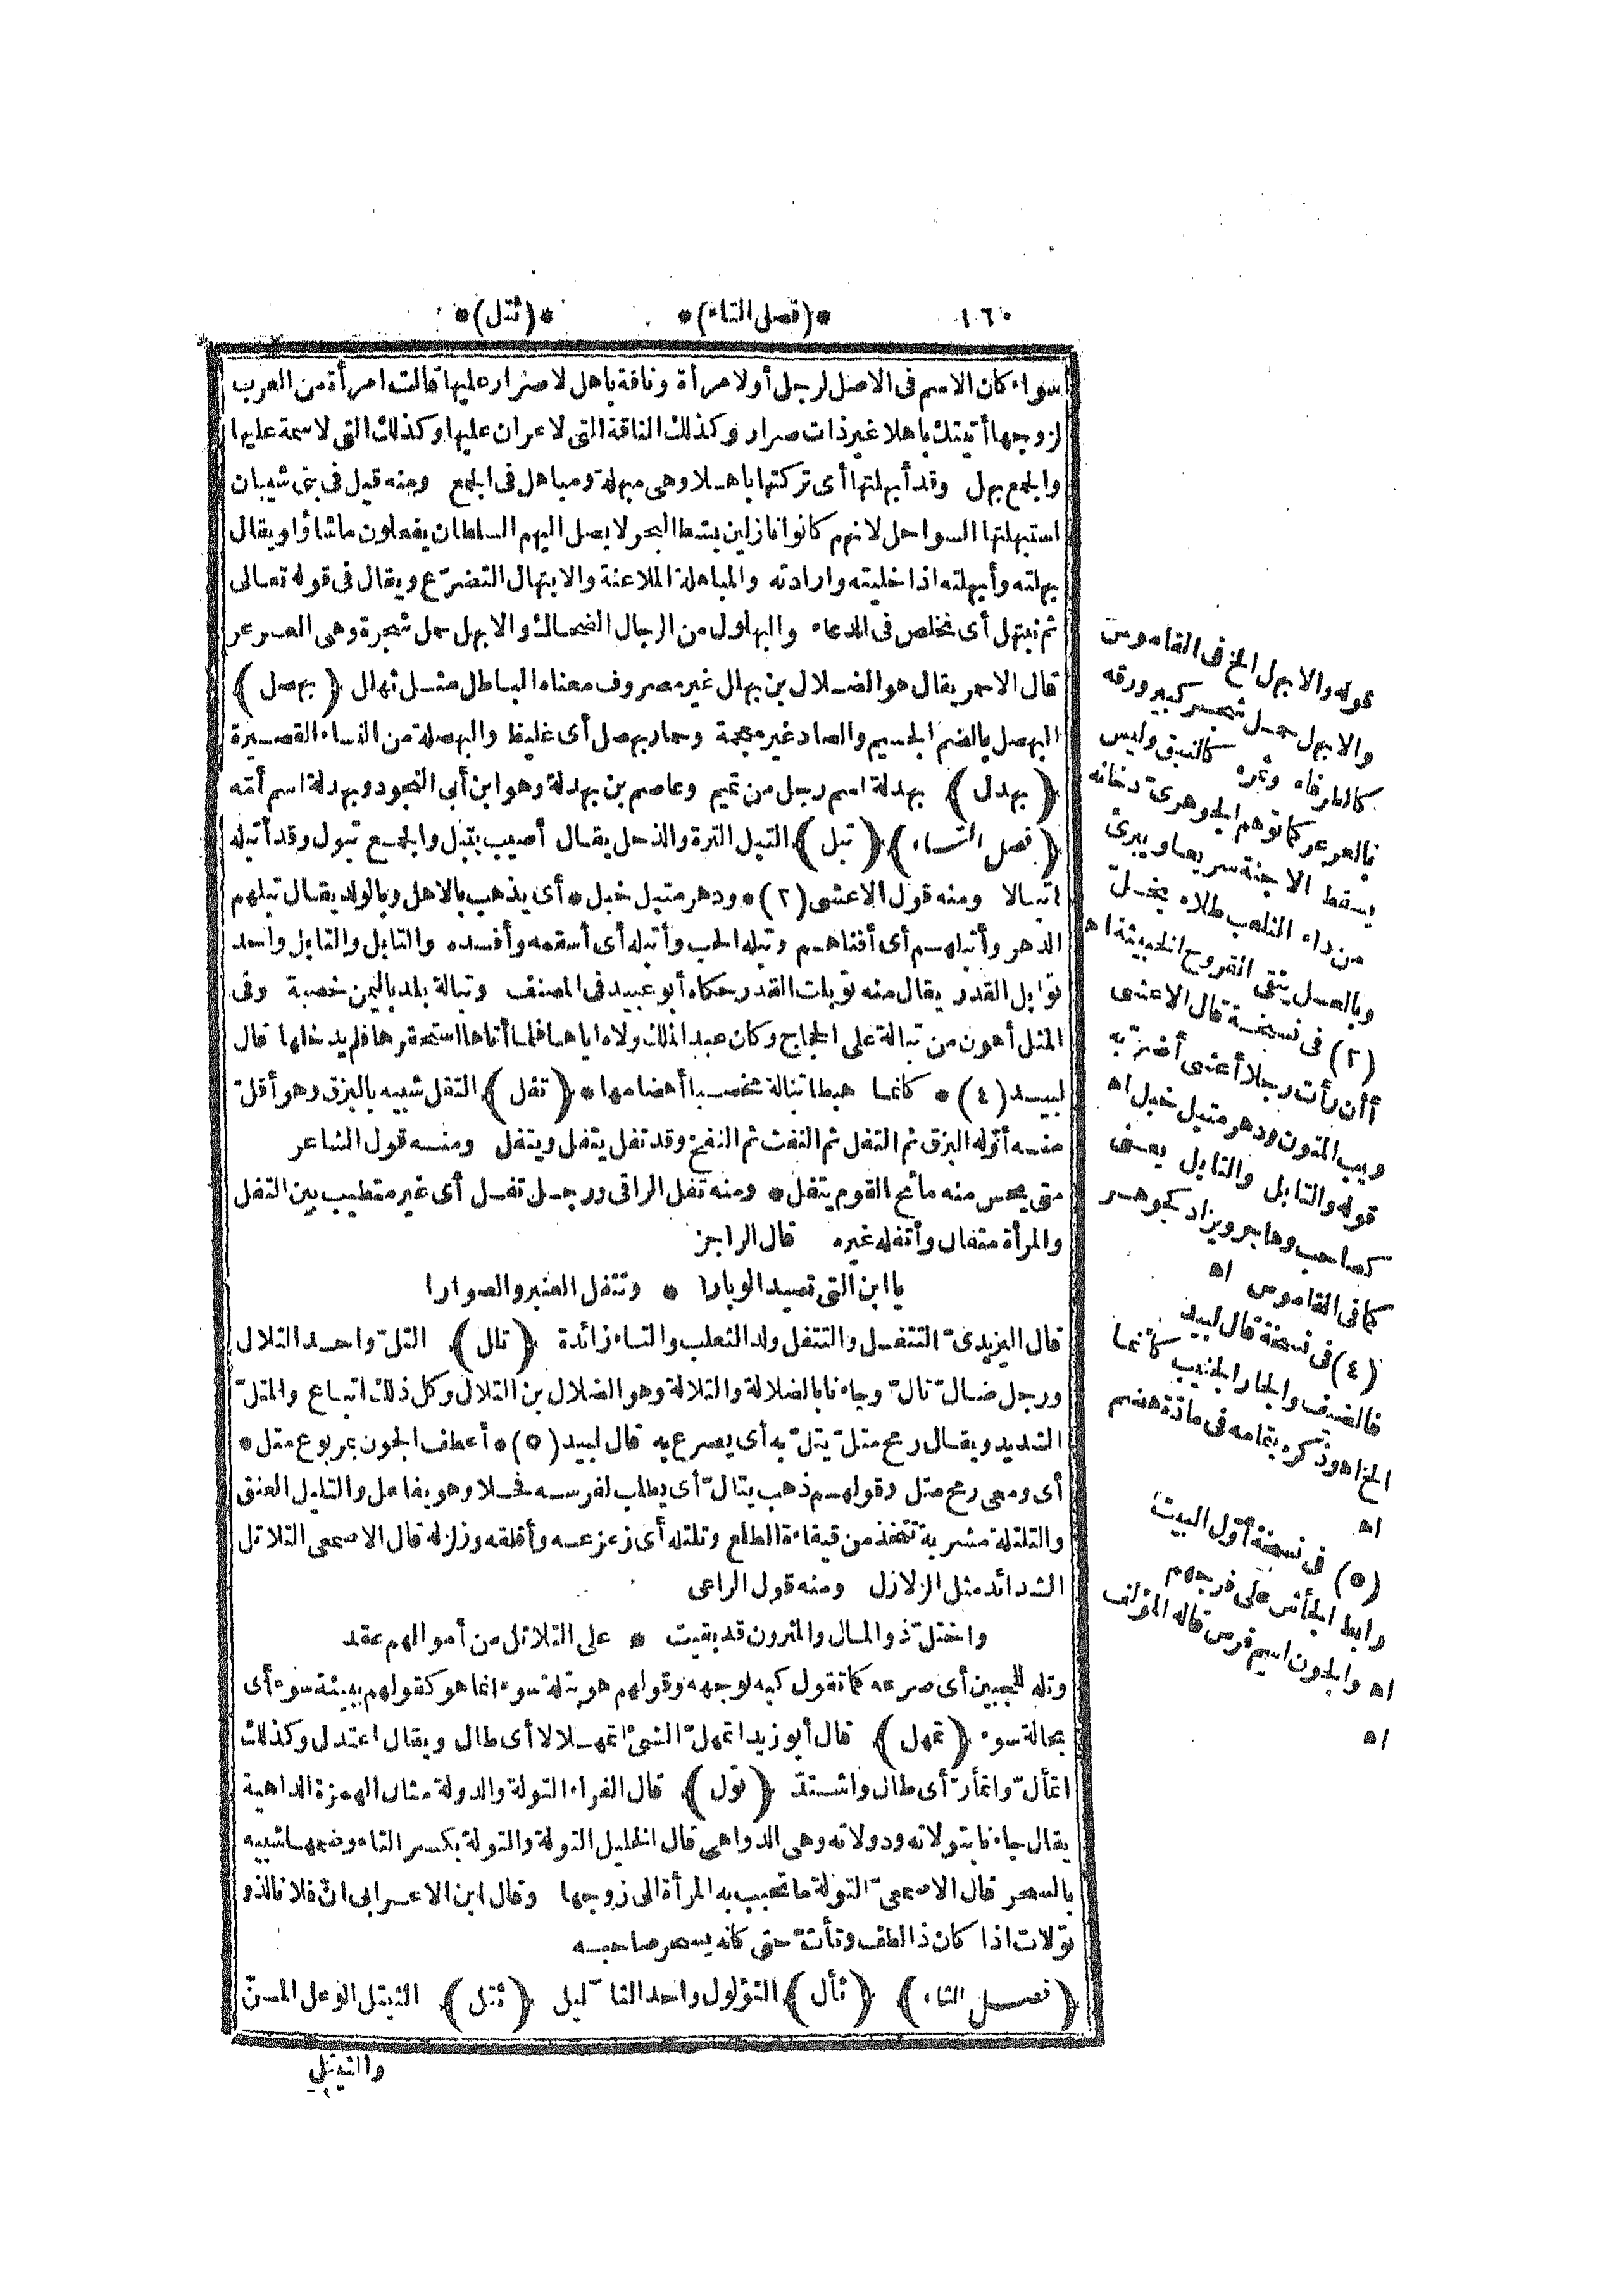 ١٦٠ *(فصل التاء)* *(ثتل)*
سواء كان الاسم فى الاصل لرجل أو لامرأة وناقة باهل لا صرار عليها قالت امرأة من العرب
لزوجها أتيتك باهلا غير ذات صرار وكذلك الناقة التى لا عران عليها وكذلك التى لا سمة عليها
والجمع بهل وقد أبهلتها أى تركتها باهلا وهى مبهلة ومباهل فى الجمع ومنه قيل فى بنى شيبان
استبهلتها السواحل لانهم كانوا نازلين بشط البحر لا يصل اليهم السلطان يفعلون ماشاؤا ويقال
بهلته وأبهلته اذا خليته وارادته والمباهلة الملاعنة والابتهال التضرّع ويقال فى قوله تعالى
ثم نبتهل أى نخلص فى الدعاء والبهلول من الرجال الضحاك والابهل حمل شجرة وهى العرعر
قال الاحمر يقال هو الضلال بن بهلل غير مصروف معناه الباطل مثل ثهلل (بهصل)
البهصل بالضم الجسيم والصاد غير معجمة وحمار بهصل أى غليظ والبهصلة من النساء القصيرة
(بهدل) بهدلة اسم رجل من تميم وعاصم بن بهدلة وهو ابن أبى النجود وبهدلة اسم أمّه
(فصل التاء) (تبل) التبل الترة والذحل يقال أصيب بتبل والجمع تبول وقد أتبله
اتبالا ومنه قول الاعشى (٢) * ودهر متبل خبل * أى يذهب بالاهل وبالولد يقال تبلهم
الدهر وأتبلهم أى أفناهم وتبله الحب وأتبله أى أسقمه وأفسده والتابل والتابل واحد
توابل القدر يقال منه توبلت القدر حكاه أبو عبيد فى المصنف وتبالة بلد باليمن خصبة وفى
المثل أهون من تبالة على الحجاج وكان عبد الملك ولاه اياها فلما أتاها استحقرها فلم يدخلها قال
لبيد (٤) * كانما هبطا تبالة مخصبا أهضامها * (تفل) التفل شبيه بالبزق وهو أقلّ
منه أوّله البزق ثم التفل ثم النفث ثم النفخ وقد تفل يتفل ويتفل ومنه قول الشاعر
متى يحس منه مائح القوم يتفل * ومنه تفل الراقى ورجل تفل أى غير متطيب بين التفل
والمرأة متفال وأتفله غيره قال الراجز
يا ابن التى تصيد الوبارا * وتتفل العنبر والصوارا
قال اليزيدىّ التتفل والتتفل ولد الثعلب والتاء زائدة (تلل) التلّ واحد التلال
ورجل ضالّ تالّ وجاءنا بالضلالة والتلالة وهو الضلال بن التلال وكل ذلك اتباع والمتلّ
الشديد ويقال رمح متلّ يتلّ به أى يصرع به قال لبيد (٥) * أعطف الجون بمربوع متل *
أى ومعى رمح متل وقولهم ذهب يتالّ أى يطلب لفرسه فحلا وهو يفاعل والتليل العنق
والتلتلة مشربة تتخذ من قيقاءة الطلع وتلتله أى زعزعه وأقلقه وزلزله قال الاصمعى التلاتل
الشدائد مثل الزلازل ومنه قول الراعى
واختلّ ذو المال والمثرون قد بقيت * على التلاتل من أموالهم عقد
وتله للجبين أى صرعه كما تقول كبه لوجهه وقولهم هو بتلة سوء انما هو كقولهم ببيئة سوء أى
بحالة سوء (تمهل) قال أبو زيد اتمهلّ الشئ اتمهلالا أى طال ويقال اعتدل وكذلك
اتمألّ واتمأرّ أى طال واشتدّ (تول) قال الفراء التولة والدولة مثال الهمزة الداهية
يقال جاءنا بتولاته ودولاته وهى الدواهى قال الخليل التولة والتولة بكسر التاء وضمها شبيه
بالسحر قال الاصمعىّ التولة ما تحبب به المرأة الى زوجها وقال ابن الاعرابى انّ فلانا لذو
تولات اذا كان ذا لطف وتأتّ حتى كانه يسحر صاحبه
(فصل الثاء) (ثأل) الثؤلول واحد الثآليل (ثتل) الثيتل الوعل المسنّ
والثيتل
قوله والابهل الخ فى القاموس
والابهل حمل شجر كبير ورقه
كالطرفاء وثمره كالنبق وليس
بالعرعر كما توهم الجوهرى دخانه
يسقط الاجنة سريعا ويبرئ
من داء الثعلب طلاء بخل
وبالعسل ينقى القروح الخبيثة اه
(٢) فى نسخة قال الاعشى
أأن رأت رجلا أعشى أضرّ به
ريب المنون ودهر متبل خبل اه
قوله والتابل والتابل يعنى
كصاحب وهاجر ويزاد كجوهر
كما فى القاموس اه
(٤) فى نسخة قال لبيد
فالضيف والجار الجنيب كانما
الخ اه وذكره بتمامه فى مادّة هضم
اه
(٥) فى نسخة أوّل البيت
رابط الجأش على فرجهم
اه والجون اسم فرس قاله المؤلف
اه